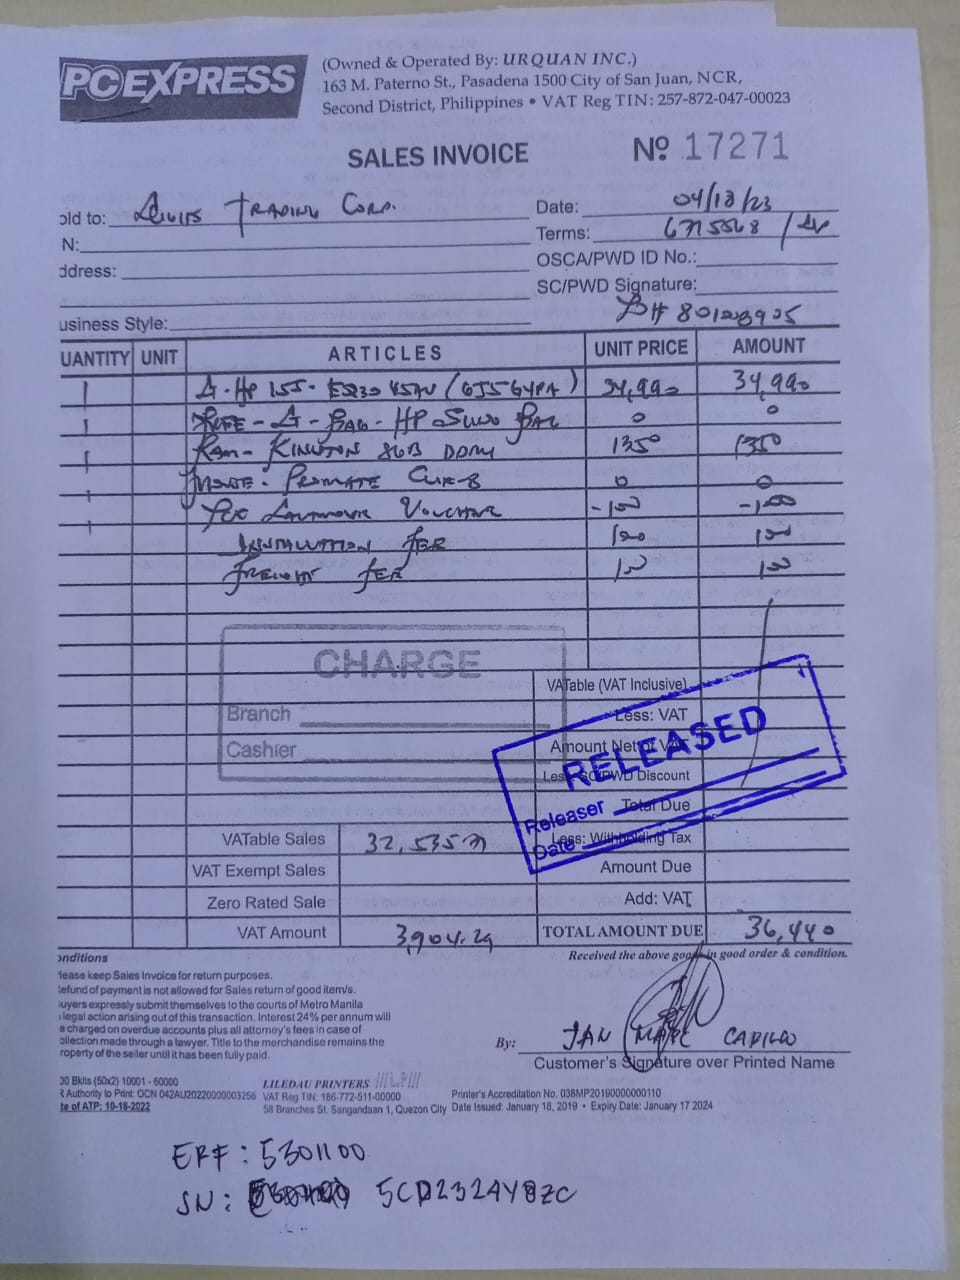 PC EXPRESS
(Owned & Operated By: URQUAN INC.)
163 M. Paterno St., Pasadena 1500 City of San Juan, NCR,
Second District, Philippines • VAT Reg TIN: 257-872-047-00023
SALES INVOICE
Nº 17271
old to: Trading Corp.
Date: 04/18/23
N:
Terms:
ddress:
OSCA/PWD ID No.:
SC/PWD Signature:
usiness Style:
UANTITY UNIT ARTICLES UNIT PRICE AMOUNT
1 HP 34,990 34,990
1 FREE - A - BAG - HP BAG 0 0
1 RAM - 8GB 1350 1350
1 PROMATE 0 0
1 VOUCHER -100 -100
INSTALLATION FEE 100 100
FREIGHT FEE 100 100
CHARGE
Branch
Cashier
VATable (VAT Inclusive)
Less: VAT
Amount Net of VAT
Less: SC/PWD Discount
Total Due
Less: Withholding Tax
Amount Due
Add: VAT
RELEASED
Releaser
Date
VATable Sales 32,535.71
VAT Exempt Sales
Zero Rated Sale
VAT Amount 3,904.29
TOTAL AMOUNT DUE 36,440
onditions
lease keep Sales Invoice for return purposes.
efund of payment is not allowed for Sales return of good item/s.
uyers expressly submit themselves to the courts of Metro Manila
legal action arising out of this transaction. Interest 24% per annum will
e charged on overdue accounts plus all attorney's fees in case of
ollection made through a lawyer. Title to the merchandise remains the
roperty of the seller until it has been fully paid.
Received the above goods in good order & condition.
By: JAN MARC
Customer's Signature over Printed Name
00 Bklts (50x2) 10001 - 60000
R Authority to Print: OCN 042AU20220000003256
te of ATP: 10-18-2022
LILEDAU PRINTERS
VAT Reg TIN: 186-772-511-00000
58 Branches St. Sangandaan 1, Quezon City
Printer's Accreditation No. 038MP20190000000110
Date Issued: January 18, 2019 • Expiry Date: January 17 2024
ERF: 5301100
SN: 5CD2324Y8ZC